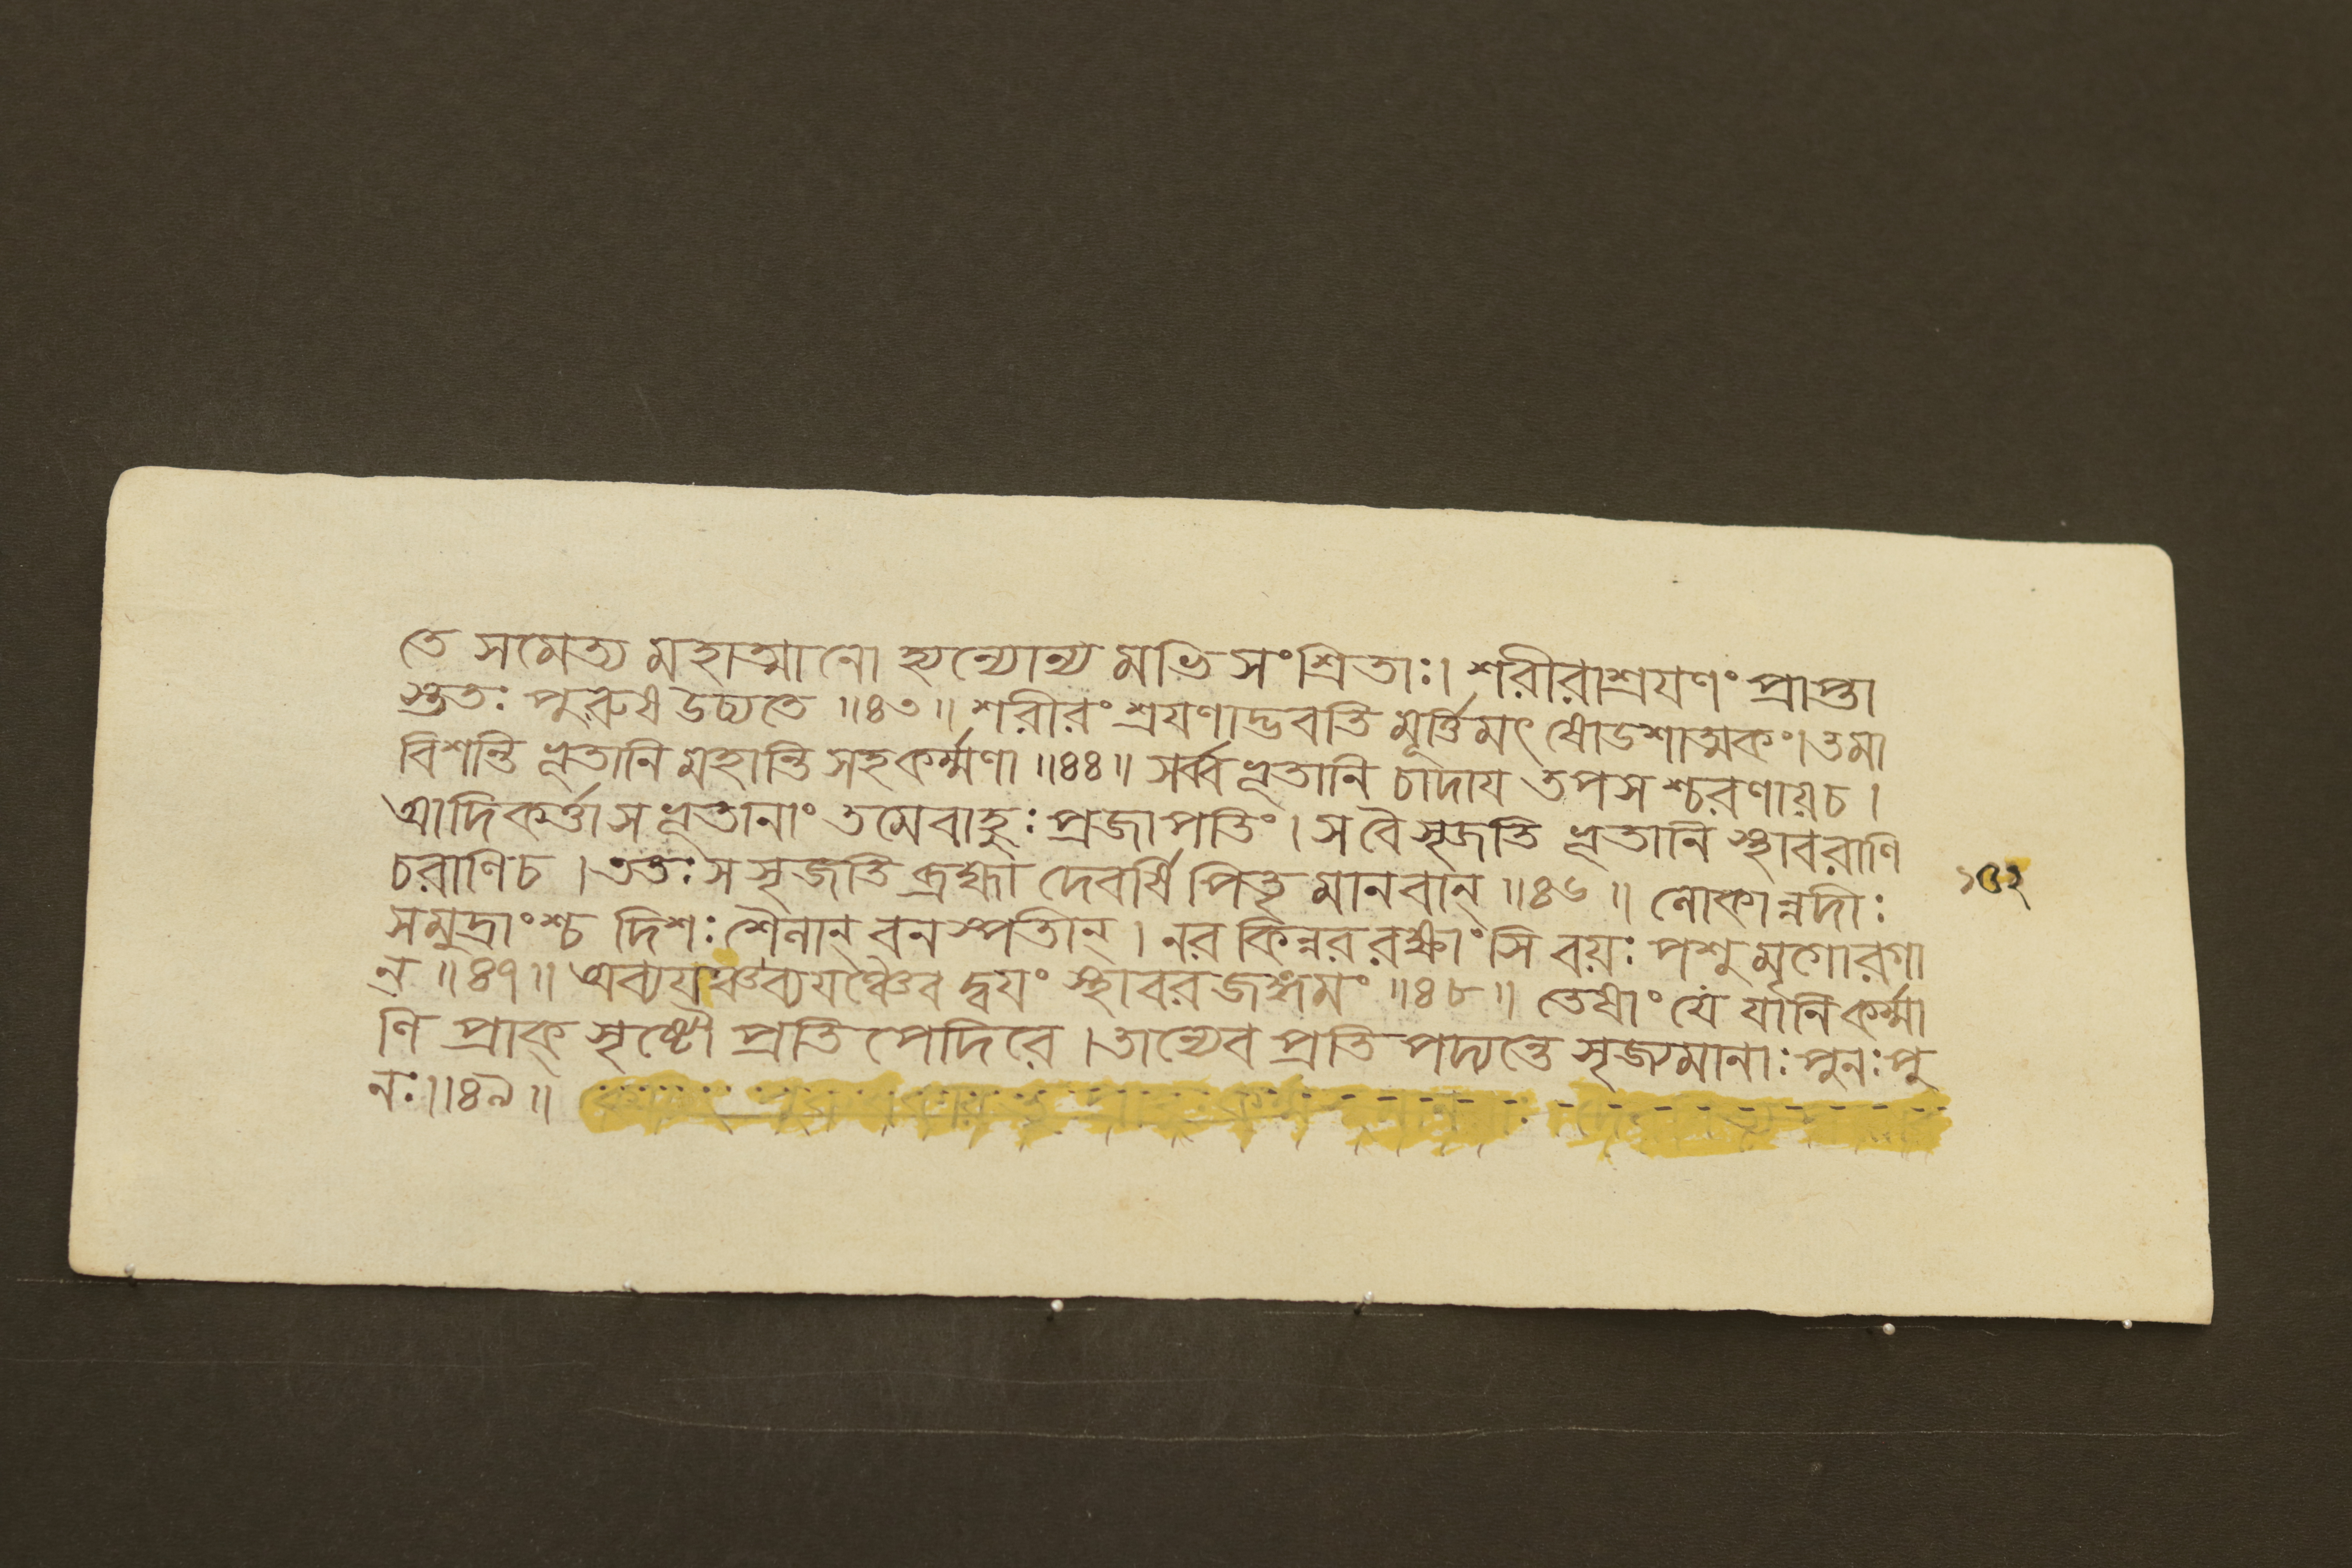 তে সমেত্য মহাত্মানো হ্যন্যোন্য মভি সংশ্রিতাঃ। শরীরাশ্রযণং প্রাপ্তা
স্তুতঃ পুরুষ উচ্যতে ॥৪৩॥ শরীরং শ্রযণাদ্ভবতি মূর্ত্তিমৎ ষোডশাত্মকং। তমা
বিশন্তি ভূতানি মহান্তি সহ কর্ম্মণা ॥৪৪॥ সর্ব্ব ভূতানি চাদায তপস শ্চরণায়চ।
আদিকর্ত্তা স ভূতানাং তমেবাহুঃ প্রজাপতিং। সবৈ সৃজতি ভূতানি স্থাবরাণি
চরাণিচ। ততঃ স সৃজতি ব্রহ্মা দেবর্ষি পিতৃ মানবান্ ॥৪৬॥ লোকান্নদীঃ
সমুদ্রাংশ্চ দিশঃ শৈলান্ বনস্পতীন্। নর কিন্নর রক্ষাংসি বয়ঃ পশু মৃগোরগা
ন ॥৪৭॥ অব্যয়ঞ্চব্যযঞ্চৈব দ্বযং স্থাবর জঙ্গমং ॥৪৮॥ তেষাং যে যানি কর্ম্মা
ণি প্রাক্ সৃষ্টৌ প্রতি পেদিরে। তান্যেব প্রতি পদ্যন্তে সৃজ্যমানাঃ পুনঃ পু
নঃ॥৪৯॥
১৫২